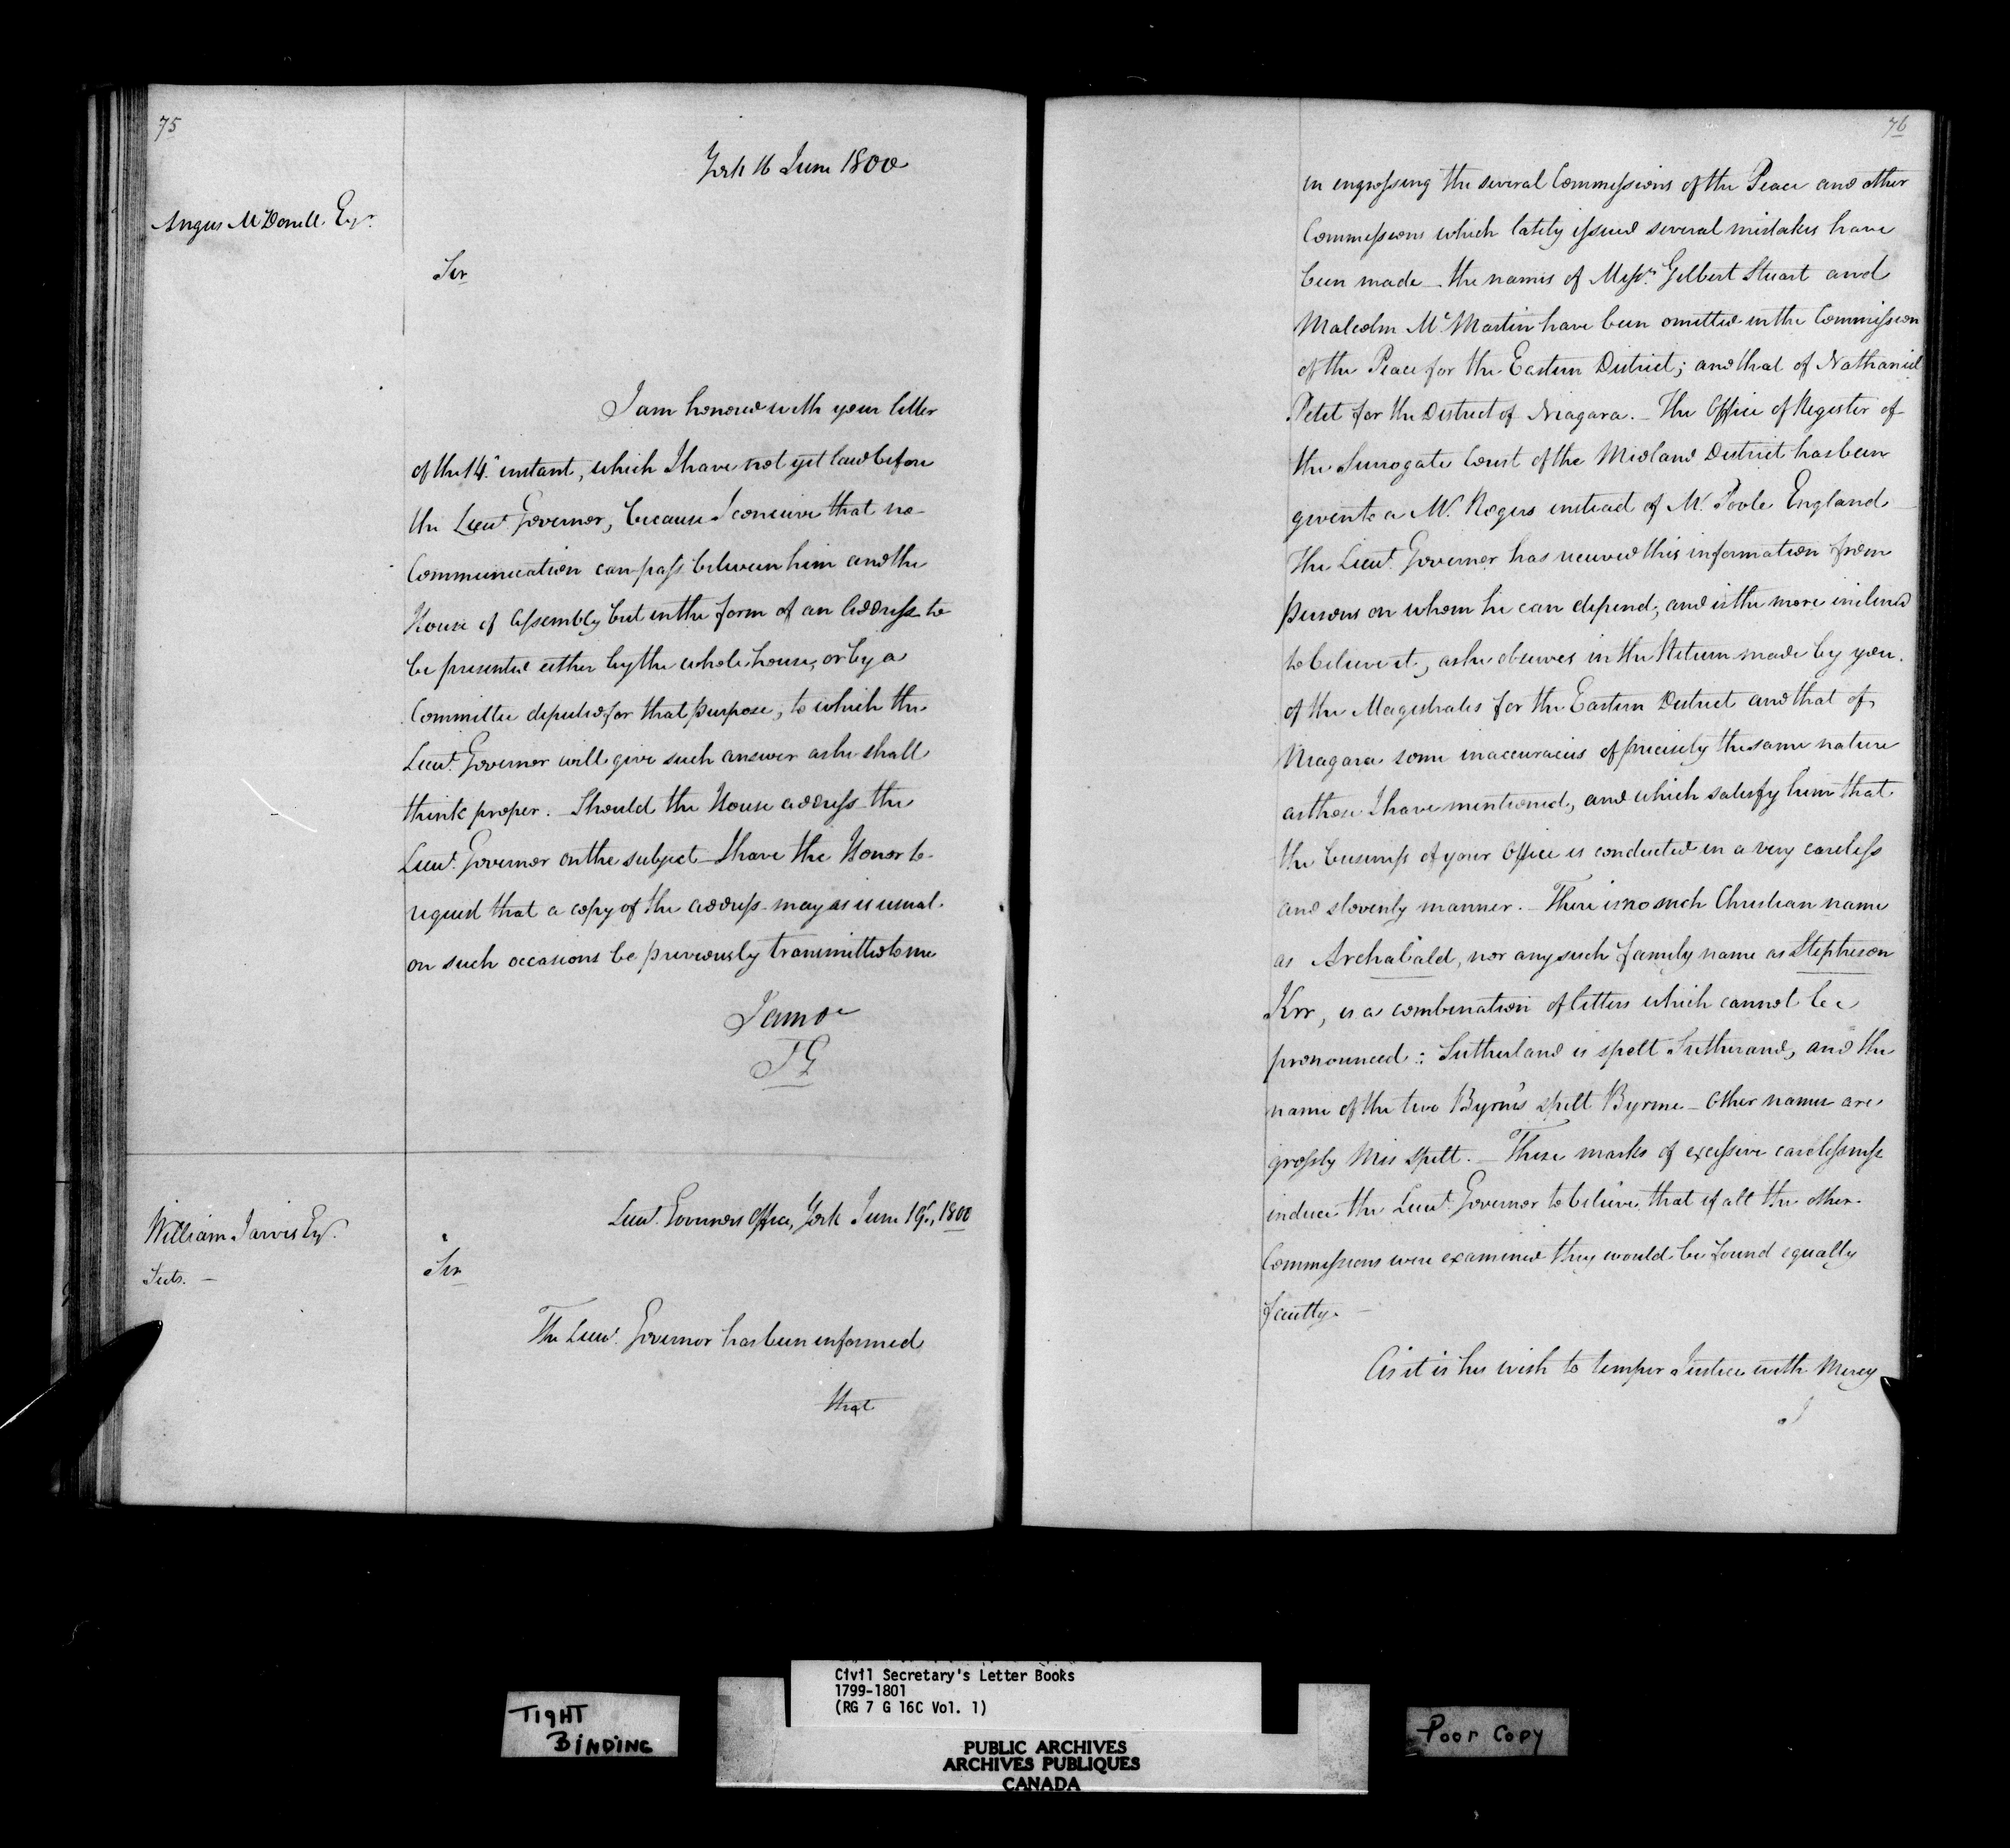 75
York 16 June 1800
Angus McDonell Esqr.
Sir
I am honored with your letter
of the 14th instant, which I have not yet laid before
the Lieut. Governor, because I conceive that no
Communication can pass between him and the
House of Assembly but in the form of an Address to
be presented either by the whole house, or by a
Committee deputed for that purpose, to which the
Lieut. Governor will give such answer as he shall
think proper. – Should the House address the
Lieut. Governor on the subject – I have the Honor to
request that a copy of the address may as is usual
on such occasions be previously transmitted to me
I am &c
William Jarvis Esqr.
Lieut. Governors Office, York June 19th, 1800
Sir
The Lieut. Governor has been informed
that
76
in engrossing the several Commissions of the Peace and other
Commissions which lately issued several mistakes have
been made – the names of Messrs. Gilbert Stuart and
Malcolm McMartin have been omitted in the Commission
of the Peace for the Eastern District; and that of Nathaniel
Petit for the District of Niagara. – The Office of Register of
the Surrogate Court of the Midland District has been
given to a Mr. Rogers instead of Mr. Poole England –
The Lieut. Governor has received this information from
persons on whom he can depend, and is the more inclined
to believe it, as he observes in the Return made by you
of the Magistrates for the Eastern District and that of
Niagara some inaccuracies of precisely the same nature
as those I have mentioned, and which satisfy him that
the business of your Office is conducted in a very careless
and slovenly manner. – There is no such Christian name
as Archabald, nor any such family name as Stepheson
Krr, is a combination of letters which cannot be
pronounced: Sutherland is spelt Sutherand, and the
name of the two Byrns spelt Byrme – Other names are
grossly Mis spelt. – These marks of excessive carelessness
induce the Lieut. Governor to believe that if all the other
Commissions were examined they would be found equally
faulty. –
As it is his wish to temper Justice with Mercy
I
TIGHT
BINDING
Civil Secretary's Letter Books
1799-1801
(RG 7 G 16C Vol. 1)
PUBLIC ARCHIVES
ARCHIVES PUBLIQUES
CANADA
Poor Copy